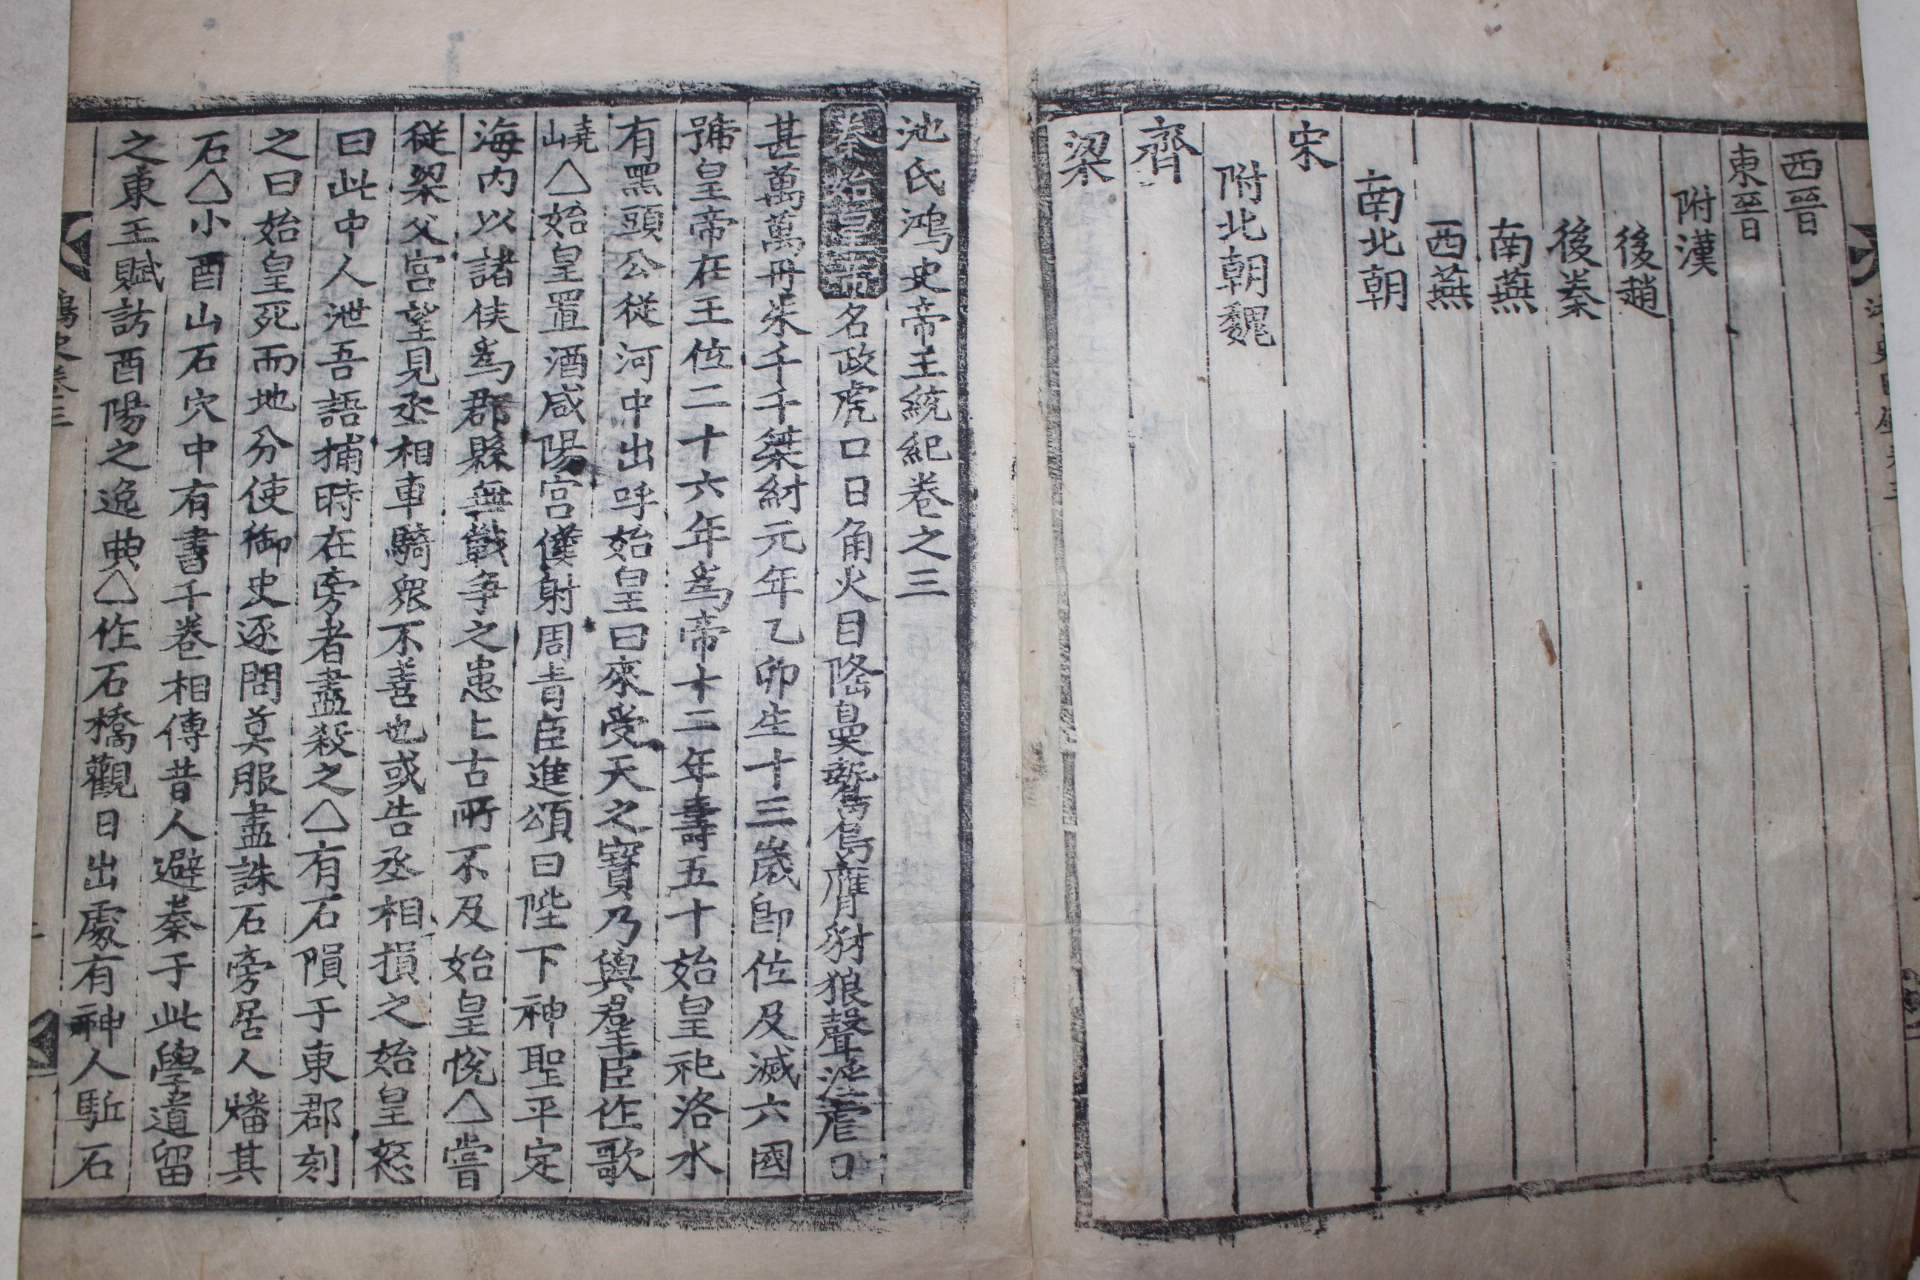 西晉
東晉
附漢
後趙
後秦
南燕
西燕
南北朝
宋
附北朝魏
齊
梁
池氏鴻史帝王統紀卷之三
秦始皇帝名政虎口日角火目隆鼻鷙鳥膺豺狼聲淫虐日
甚萬萬丹朱千千桀紂元年乙卯生十三歲卽位及滅六國
號皇帝在王位二十六年爲帝十二年壽五十始皇祀洛水
有黑頭公從河中出呼始皇曰來受天之寶乃與羣臣作歌
嶢△始皇置酒咸陽宮僕射周靑臣進頌曰陛下神聖平定
海內以諸侯爲郡縣無戰爭之患上古所不及始皇悅△嘗
從梁父宮望見丞相車騎衆不善也或告丞相損之始皇怒
曰此中人泄吾語捕時在旁者盡殺之△有石隕于東郡刻
之曰始皇死而地分使御史逐問莫服盡誅石旁居人燔其
石△小酉山石穴中有書千卷相傳昔人避秦于此學遺留
之東王賦訪酉陽之逸典△作石橋觀日出處有神人駈石
鴻史卷三